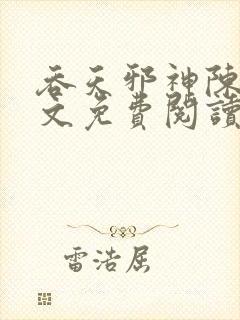 吞天邪神陳
文免費閱讀
雷浩居